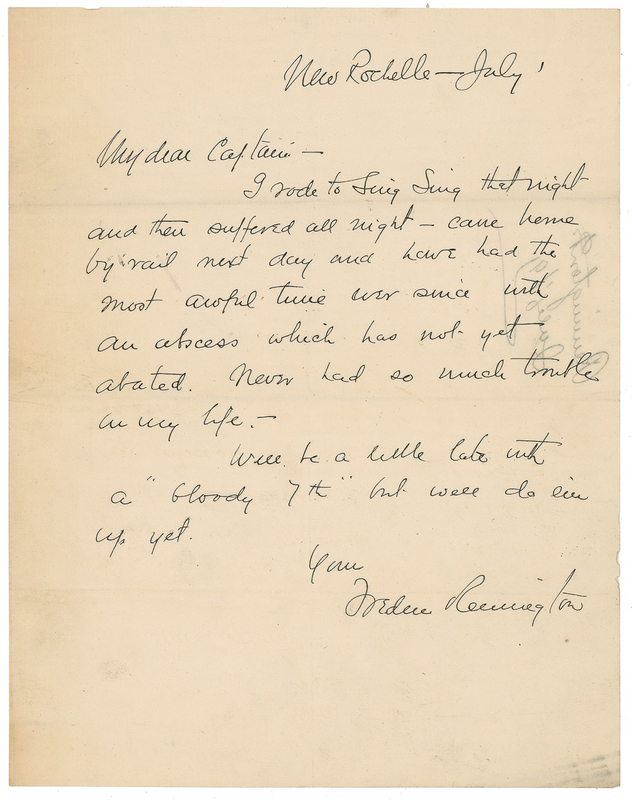 New Rochelle — July 1
My dear Captain —
I rode to Sing Sing that night
and then suffered all night — came home
by rail next day and have had the
most awful time ever since with
an abscess which has not yet
abated. Never had so much trouble
in my life. —
Will be a little late with
a "bloody 7th" but will do
up yet.
Your
Frederic Remington